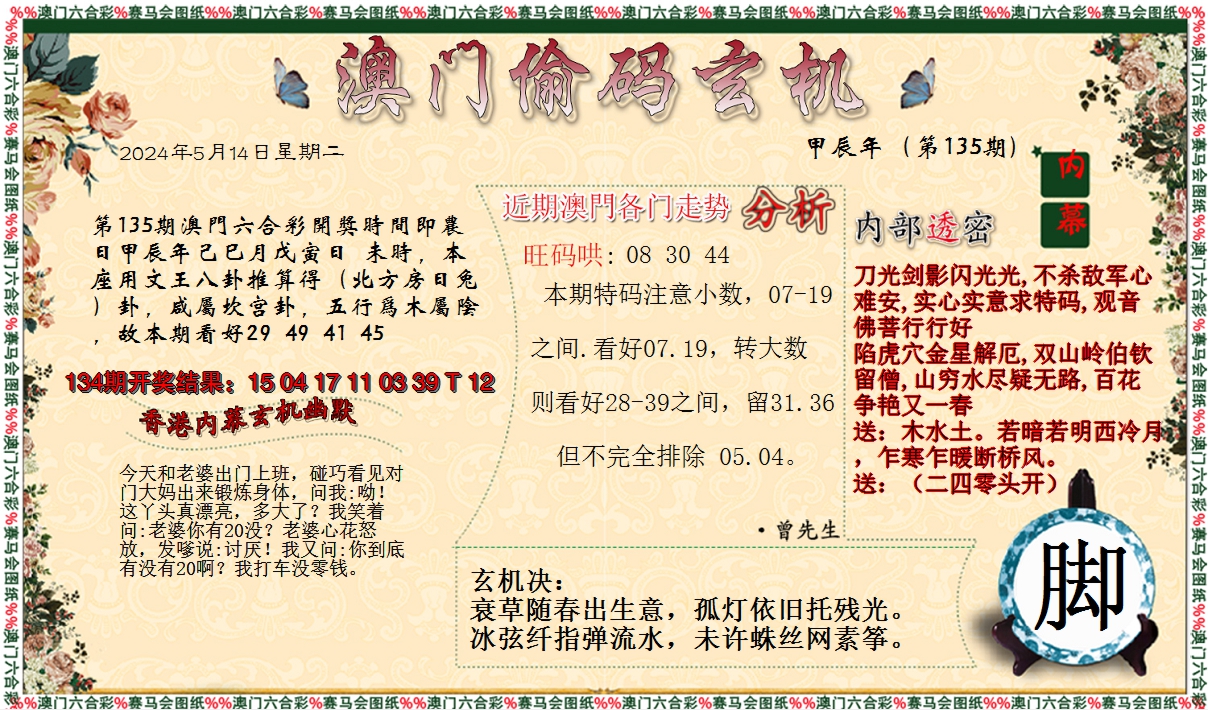 %%澳门六合彩%赛马会图纸%%澳门六合彩%赛马会图纸%%澳门六合彩%赛马会图纸%%澳门六合彩%赛马会图纸%%澳门六合彩%赛马会图纸%%澳门六合彩%赛马会图纸%%
澳门偷码玄机
2024年5月14日星期二
甲辰年（第135期）
内幕
第135期澳門六合彩開獎時間即農
日甲辰年己巳月戊寅日 未時，本
座用文王八卦推算得（北方房日兔
）卦，咸屬坎宫卦，五行爲木屬陰
，故本期看好29 49 41 45
134期开奖结果：15 04 17 11 03 39 T 12
香港内幕玄机幽默
今天和老婆出门上班，碰巧看见对
门大妈出来锻炼身体，问我:呦！
这丫头真漂亮，多大了？我笑着
问:老婆你有20没？老婆心花怒
放，发嗲说:讨厌！我又问:你到底
有没有20啊？我打车没零钱。
近期澳門各门走势 分析
旺码哄: 08 30 44
本期特码注意小数，07-19
之间.看好07.19，转大数
则看好28-39之间，留31.36
但不完全排除 05.04。
·曾先生
内部透密
刀光剑影闪光光,不杀敌军心
难安,实心实意求特码,观音
佛菩行行好
陷虎穴金星解厄,双山岭伯钦
留僧,山穷水尽疑无路,百花
争艳又一春
送：木水土。若暗若明西冷月
，乍寒乍暖断桥风。
送：（二四零头开）
玄机决：
衰草随春出生意，孤灯依旧托残光。
冰弦纤指弹流水，未许蛛丝网素筝。
脚
%%澳门六合彩%赛马会图纸%%澳门六合彩%赛马会图纸%%澳门六合彩%赛马会图纸%%澳门六合彩%赛马会图纸%%澳门六合彩%赛马会图纸%%澳门六合彩%赛马会图纸%%